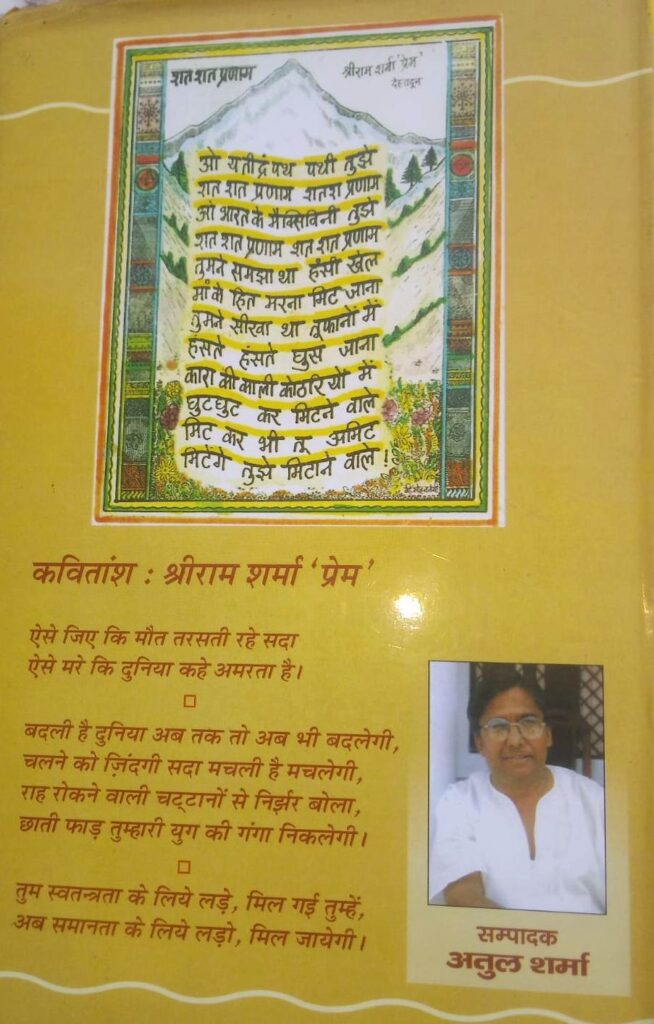 शत शत प्रणाम
श्रीराम शर्मा 'प्रेम'
देहरादून
ओ यतीद्रं पथ पंथी तुझे
शत शत प्रणाम शतश प्रणाम
ओ भारत के मैक्सिविनी तुझे
शत शत प्रणाम शत शत प्रणाम
तुमने समझा था हंसी खेल
मां के हित मरना मिट जाना
तुमने सीखा था तूफानों में
हंसते हंसते घुस जाना
कारा की काली कोठरियों में
घुटघुट कर मिटने वाले
मिट कर भी तू अमिट
मिटेंगे तुझे मिटाने वाले !
कवितांश : श्रीराम शर्मा 'प्रेम'
ऐसे जिए कि मौत तरसती रहे सदा
ऐसे मरे कि दुनिया कहे अमरता है।
बदली है दुनिया अब तक तो अब भी बदलेगी,
चलने को ज़िंदगी सदा मचली है मचलेगी,
राह रोकने वाली चट्टानों से निर्झर बोला,
छाती फाड़ तुम्हारी युग की गंगा निकलेगी।
तुम स्वतन्त्रता के लिये लड़े, मिल गई तुम्हें,
अब समानता के लिये लड़ो, मिल जायेगी।
सम्पादक
अतुल शर्मा